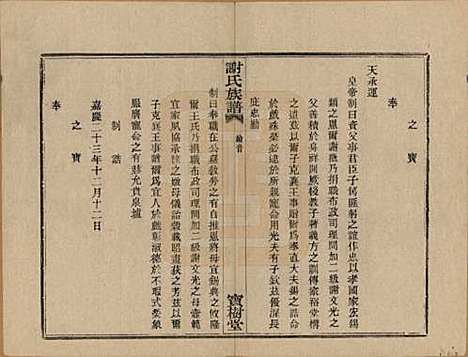 奉
天承運
皇帝制曰資父事君臣子篤匪躬之誼作忠以孝國家宏錫
類之恩爾謝澂乃捐職布政司理問加二級謝文光之
父善積於身祥開厥後教子著義方之訓傳家裕堂構
之遺茲以爾子克襄王事贈爾爲奉直大夫錫之誥命
於戲殊榮必逮於所親寵命用光夫有子欽茲優渥長
庇忠勤
之寶
謝氏族譜
綸音
寶樹堂
制曰奉職在公嘉教勞之有自推恩將母宜錫典之攸隆
爾王氏乃捐職布政司理問加二級謝文光之母壼範
宜家夙協承筐之媺母儀詒穀載昭畫荻之芳茲以爾
子克襄王事贈爾爲宜人於戲彰淑德於不瑕式榮象
服膺寵命之有赫允賁泉壚
制誥
嘉慶二十三年十二月十二日
之寶
奉